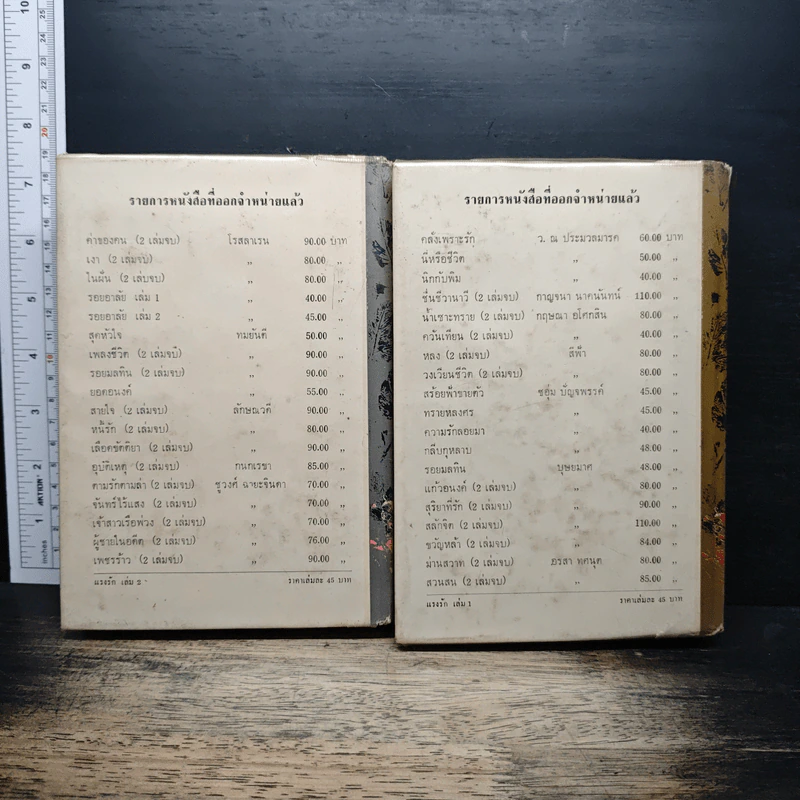 รายการหนังสือที่ออกจำหน่ายแล้ว
ค่าของคน (2 เล่มจบ) โรสลาเรน 90.00 บาท
เงา (2 เล่มจบ) ,, 80.00 ,,
ในฝัน (2 เล่มจบ) ,, 80.00 ,,
รอยอาลัย เล่ม 1 ,, 40.00 ,,
รอยอาลัย เล่ม 2 ,, 45.00 ,,
สุดหัวใจ ทมยันตี 50.00 ,,
เพลงชีวิต (2 เล่มจบ) ,, 90.00 ,,
รอยมลทิน (2 เล่มจบ) ,, 90.00 ,,
ยอดอนงค์ ,, 55.00 ,,
สายใจ (2 เล่มจบ) ลักษณวดี 90.00 ,,
หนี้รัก (2 เล่มจบ) ,, 80.00 ,,
เลือดขัตติยา (2 เล่มจบ) ,, 90.00 ,,
อุบัติเหตุ (2 เล่มจบ) กนกเรขา 85.00 ,,
ตามรักตามล่า (2 เล่มจบ) ชูวงศ์ ฉายะจินดา 70.00 ,,
จันทร์ไร้แสง (2 เล่มจบ) ,, 70.00 ,,
เจ้าสาวเรือพ่วง (2 เล่มจบ) ,, 70.00 ,,
ผู้ชายในอดีต (2 เล่มจบ) ,, 76.00 ,,
เพชรร้าว (2 เล่มจบ) ,, 90.00 ,,
แรงรัก เล่ม 2 ราคาเล่มละ 45 บาท
รายการหนังสือที่ออกจำหน่ายแล้ว
คลั่งเพราะรัก ว. ณ ประมวลมารค 60.00 บาท
นี่หรือชีวิต ,, 50.00 ,,
นิกกับพิม ,, 40.00 ,,
ชื่นชีวานาวี (2 เล่มจบ) กาญจนา นาคนันทน์ 110.00 ,,
น้ำเซาะทราย (2 เล่มจบ) กฤษณา อโศกสิน 80.00 ,,
ควันเทียน (2 เล่มจบ) ,, 40.00 ,,
หลง (2 เล่มจบ) สีฟ้า 80.00 ,,
วงเวียนชีวิต (2 เล่มจบ) ,, 80.00 ,,
สร้อยฟ้าขายตัว ชอุ่ม ปัญจพรรค์ 45.00 ,,
ทรายหลงศร ,, 45.00 ,,
ความรักลอยมา ,, 40.00 ,,
กลีบกุหลาบ ,, 48.00 ,,
รอยมลทิน บุษยมาศ 48.00 ,,
แก้วอนงค์ (2 เล่มจบ) ,, 80.00 ,,
สุริยาที่รัก (2 เล่มจบ) ,, 90.00 ,,
สลักจิต (2 เล่มจบ) ,, 110.00 ,,
ขวัญหล้า (2 เล่มจบ) ,, 84.00 ,,
ม่านสวาท (2 เล่มจบ) อรสา ทศนุต 80.00 ,,
สวนสน (2 เล่มจบ) ,, 85.00 ,,
แรงรัก เล่ม 1 ราคาเล่มละ 45 บาท